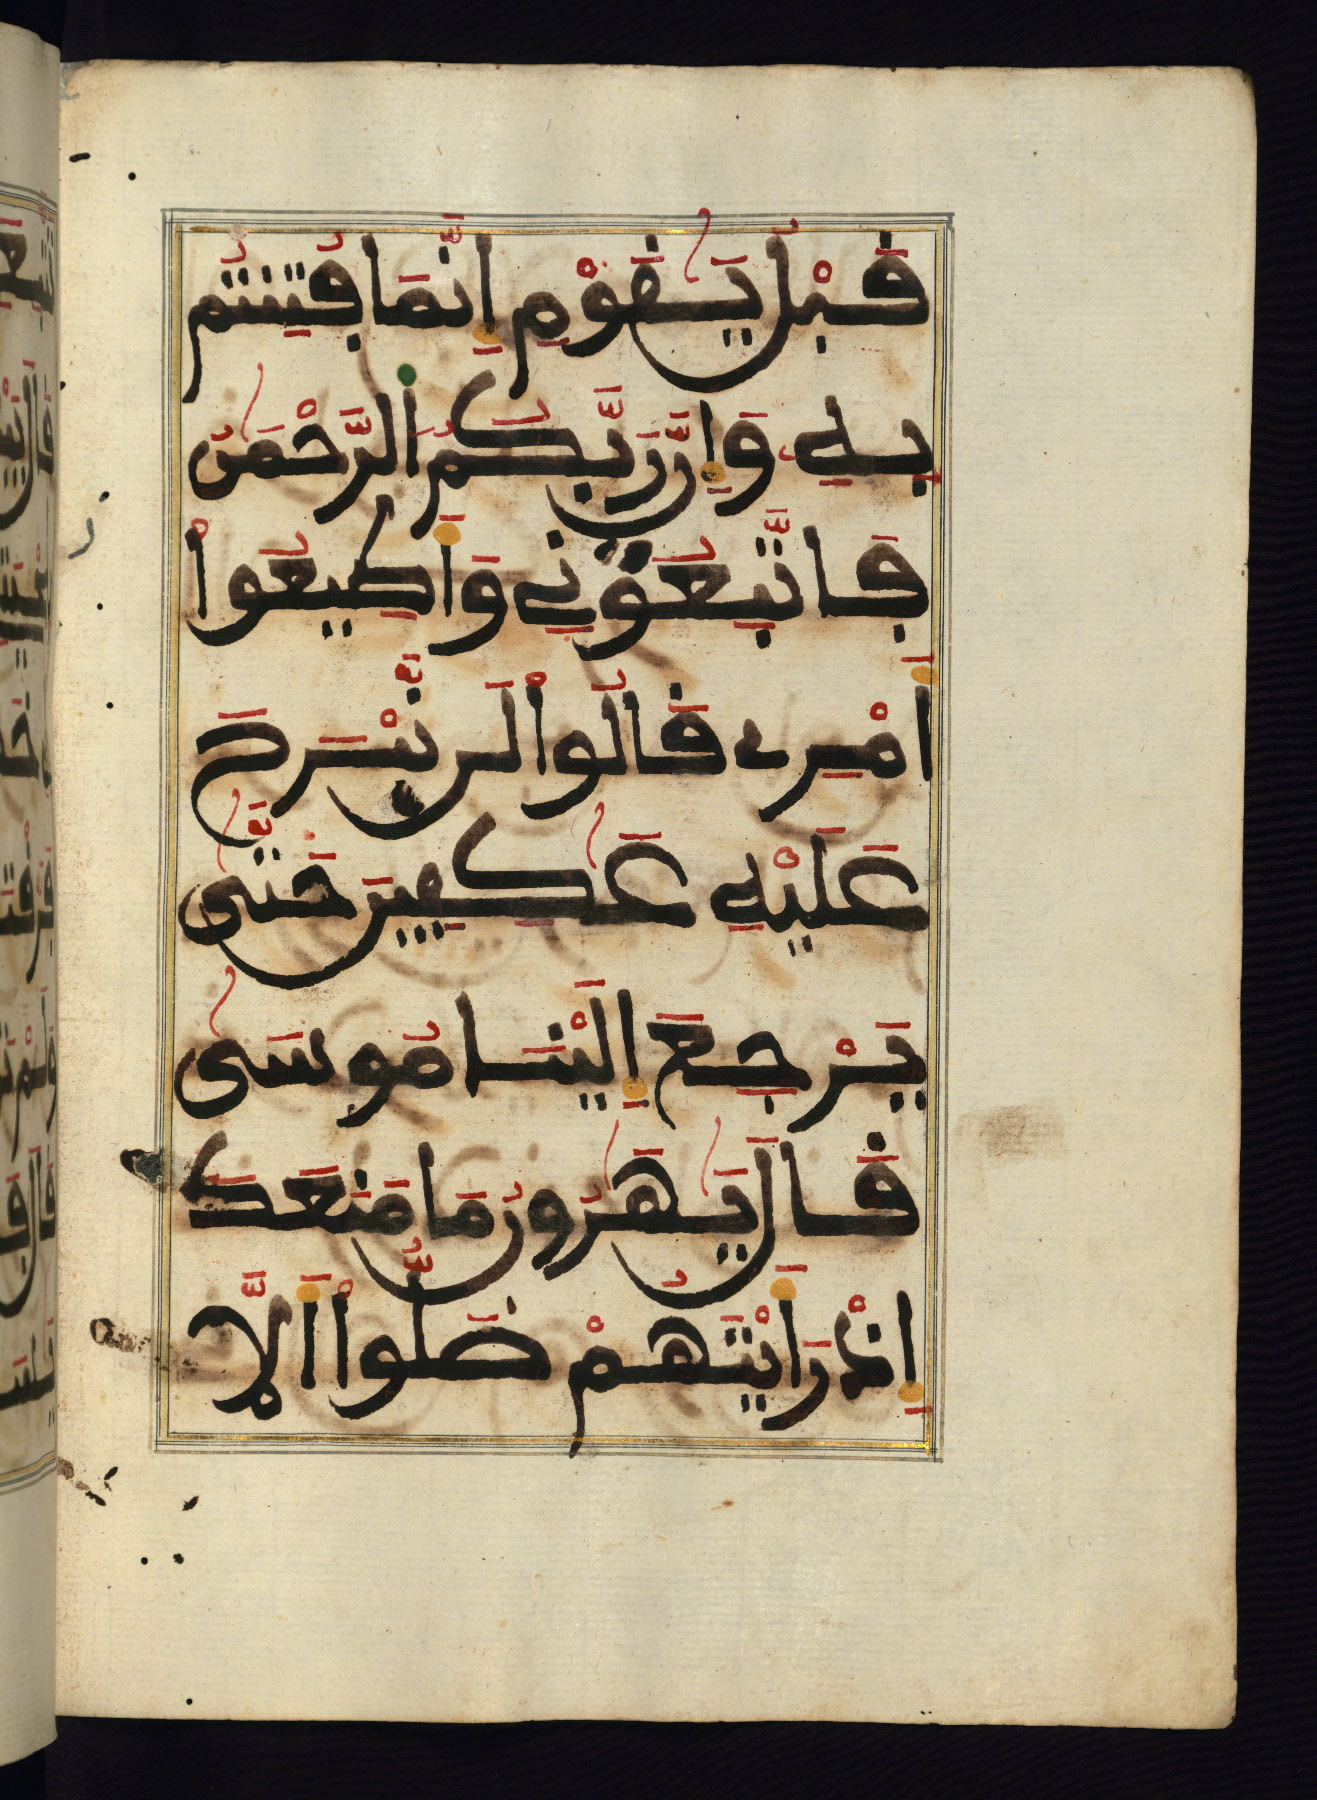 قَبْلُ يَٰقَوْمِ إِنَّمَا فُتِنتُم
بِهِۦ وَإِنَّ رَبَّكُمُ اُ۬لرَّحْمَٰنُ
فَاتَّبِعُونِي وَأَطِيعُواْ
أَمْرِي قَالُواْ لَن نَّبْرَحَ
عَلَيْهِ عَٰكِفِينَ حَتَّىٰ
يَرْجِعَ إِلَيْنَا مُوسَىٰ
قَالَ يَٰهَٰرُونُ مَا مَنَعَكَ
إِذْ رَأَيْتَهُمْ ضَلُّواْ أَلَّا